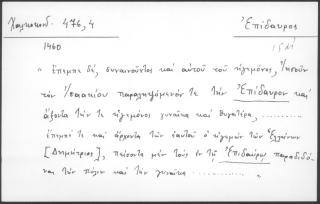 Χαλκοκονδ. 476, 4 Ἐπίδαυρος
1460
" ἔπεμπε δέ, συναινοῦντος καὶ αὐτοῦ τοῦ ἡγεμόνος,
τὸν Ἰσαακίου παραληψόμενόν τε τὴν Ἐπίδαυρον καὶ
ἄξοντα τήν τε ἡγεμόνος γυναῖκα καὶ θυγατέρα, ..........
ἔπεμπέ τε καὶ ἄρχοντα τῶν ἑαυτοῦ ὁ ἡγεμὼν τῶν Ἑλλήνων
[Δημήτριος], πείσοντα μὲν τοὺς ἐν τῇ Ἐπιδαύρῳ παραδιδό-
ναι τὴν πόλιν καὶ τὴν γυναῖκα .......... "